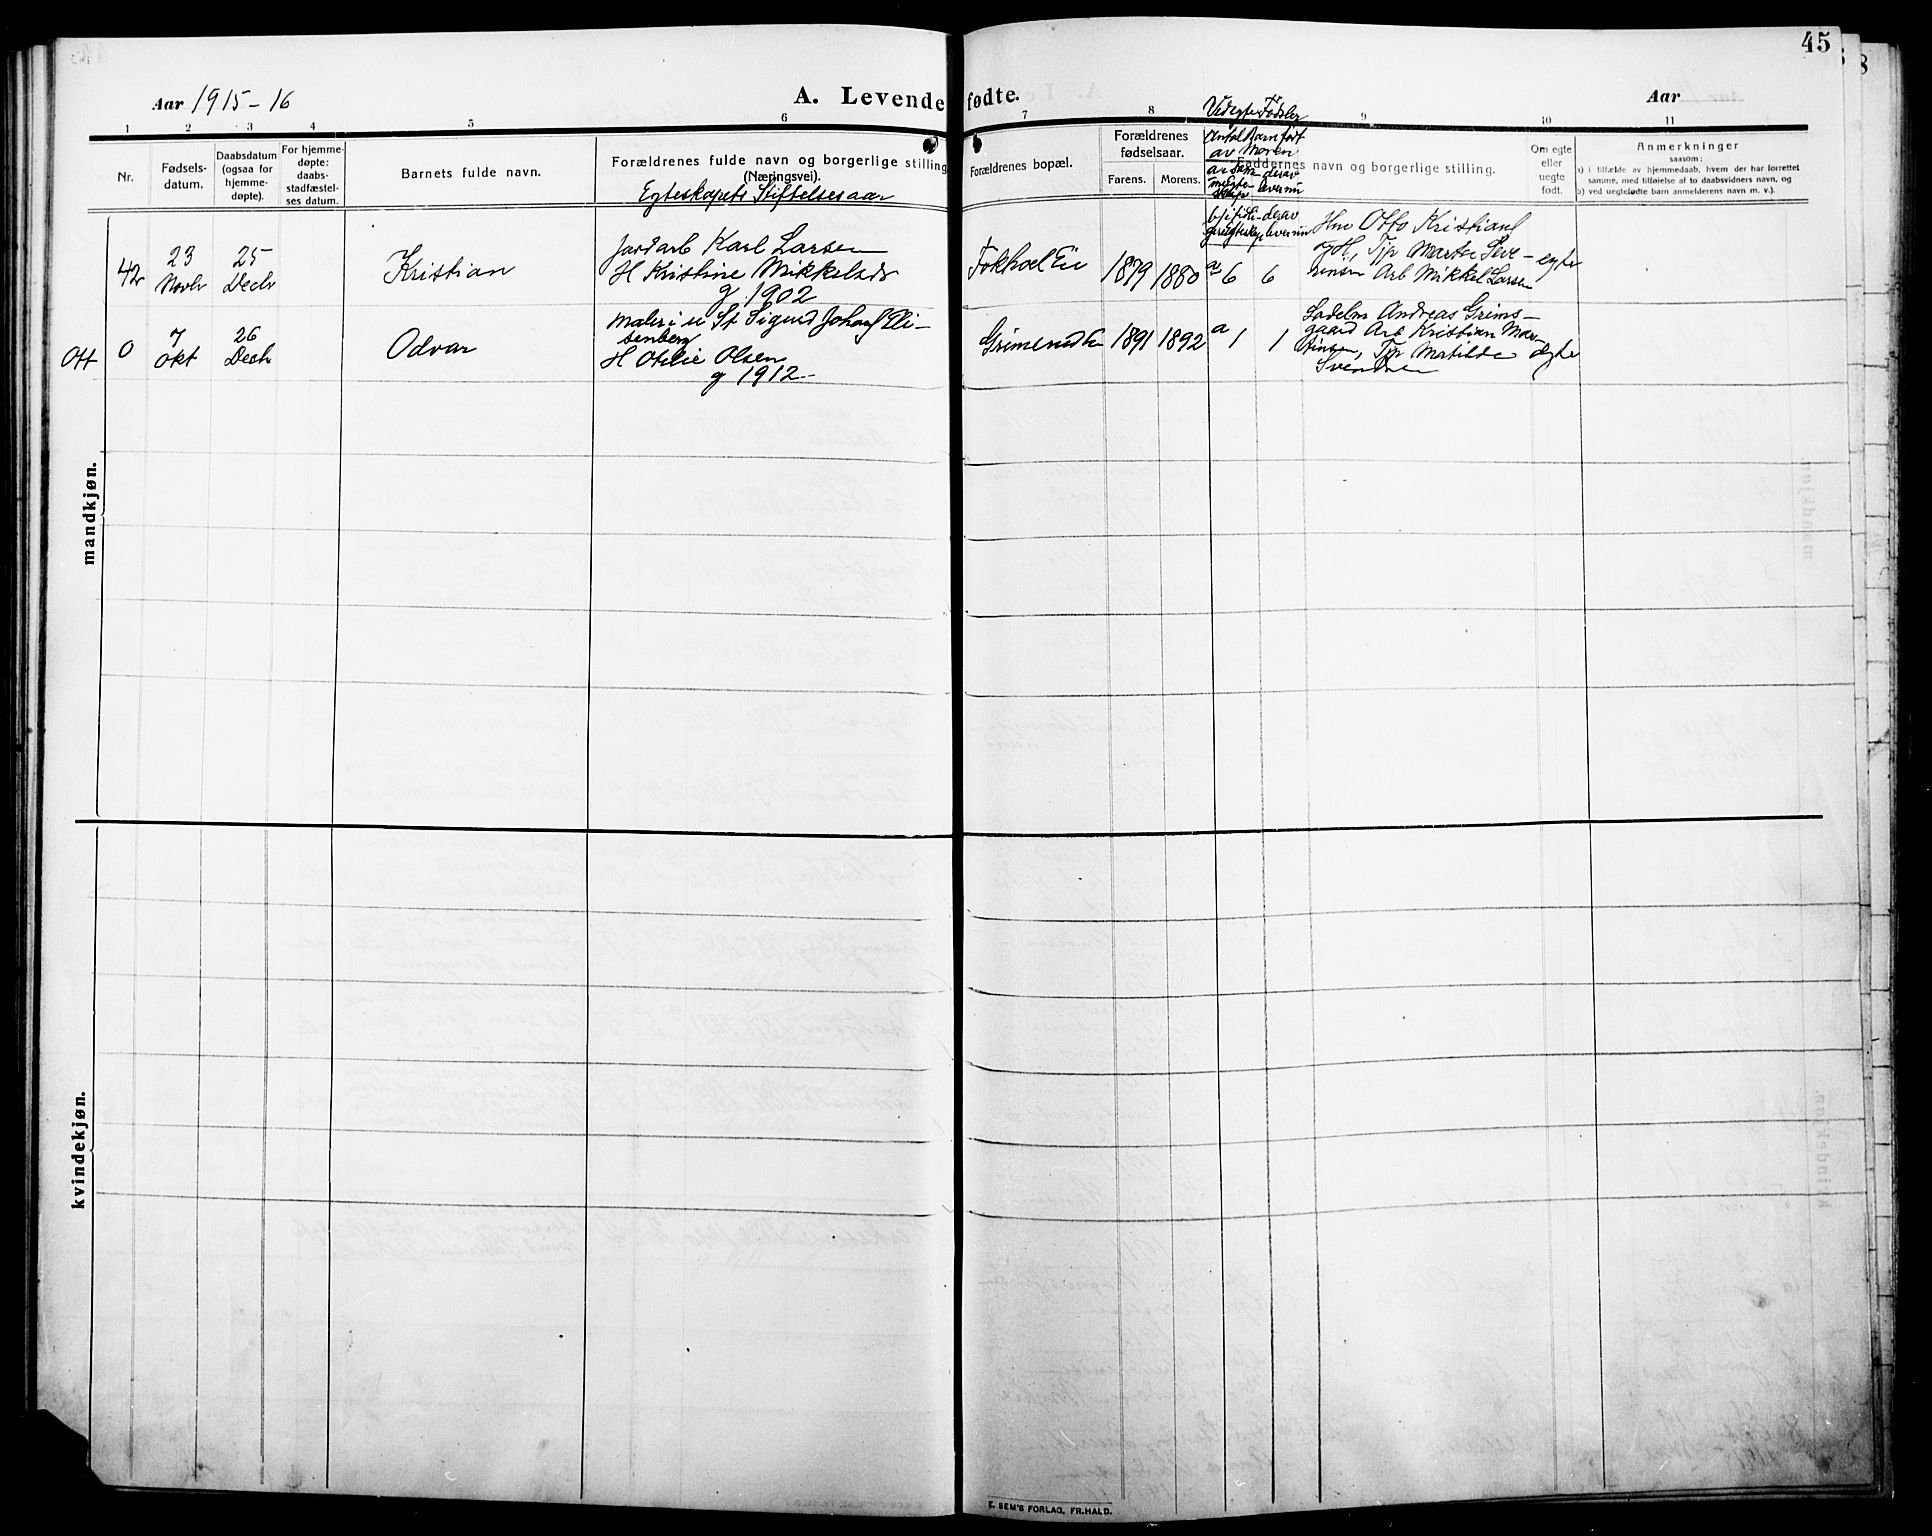 45
8
Aar 1915-16
A. Levende fødte.
Aar
1 2 3 4 5 6 7 8 9 10 11
Nr.
Fødsels-
datum.
Daabsdatum
(ogsaa for
hjemme-
døpte).
For hjemme-
døpte:
daabs-
stadfæstel-
ses datum.
Barnets fulde navn.
Forældrenes fulde navn og borgerlige stilling
(Næringsvei).
Egteskapets Stiftelsesaar
Forældrenes bopæl.
Forældrenes
fødselsaar.
Farens.
Morens.
Ved egte Fødsler
Antal Barn født
av Moren
Faddernes navn og borgerlige stilling.
Om egte
eller
uegte
født.
Anmerkninger
saasom:
a) i tilfælde av hjemmedaab, hvem der har forrettet
samme, med tilføielse af to daabsvidners navn, og
b) ved uegtefødte barn anmelderens navn m. v.).
mandkjøn.
42
23
Novbr
25
Decbr
Kristian
Jordarb Karl Larsen
H Kristine Mikkelsdr
g 1902
Fokhol Eie
1879
1880
a 6
6
Hm Otto Kristians
og H, Tjp Marte Seve-
rinsen Arb Mikkel Larsen
egte
Ott
0
7
Okt
26
Decbr
Odvar
Maler i u St Sigurd Johans Eli-
senberg
H Otilie Olsen
g 1912
1891
1892
a 1
1
Sadelm Andreas Grims-
gaard Arb Kristian Mar-
tinsen, Tjp Matilde
Svendsen
egte
kvindekjøn.
E. SEM'S FORLAG, FR.HALD.